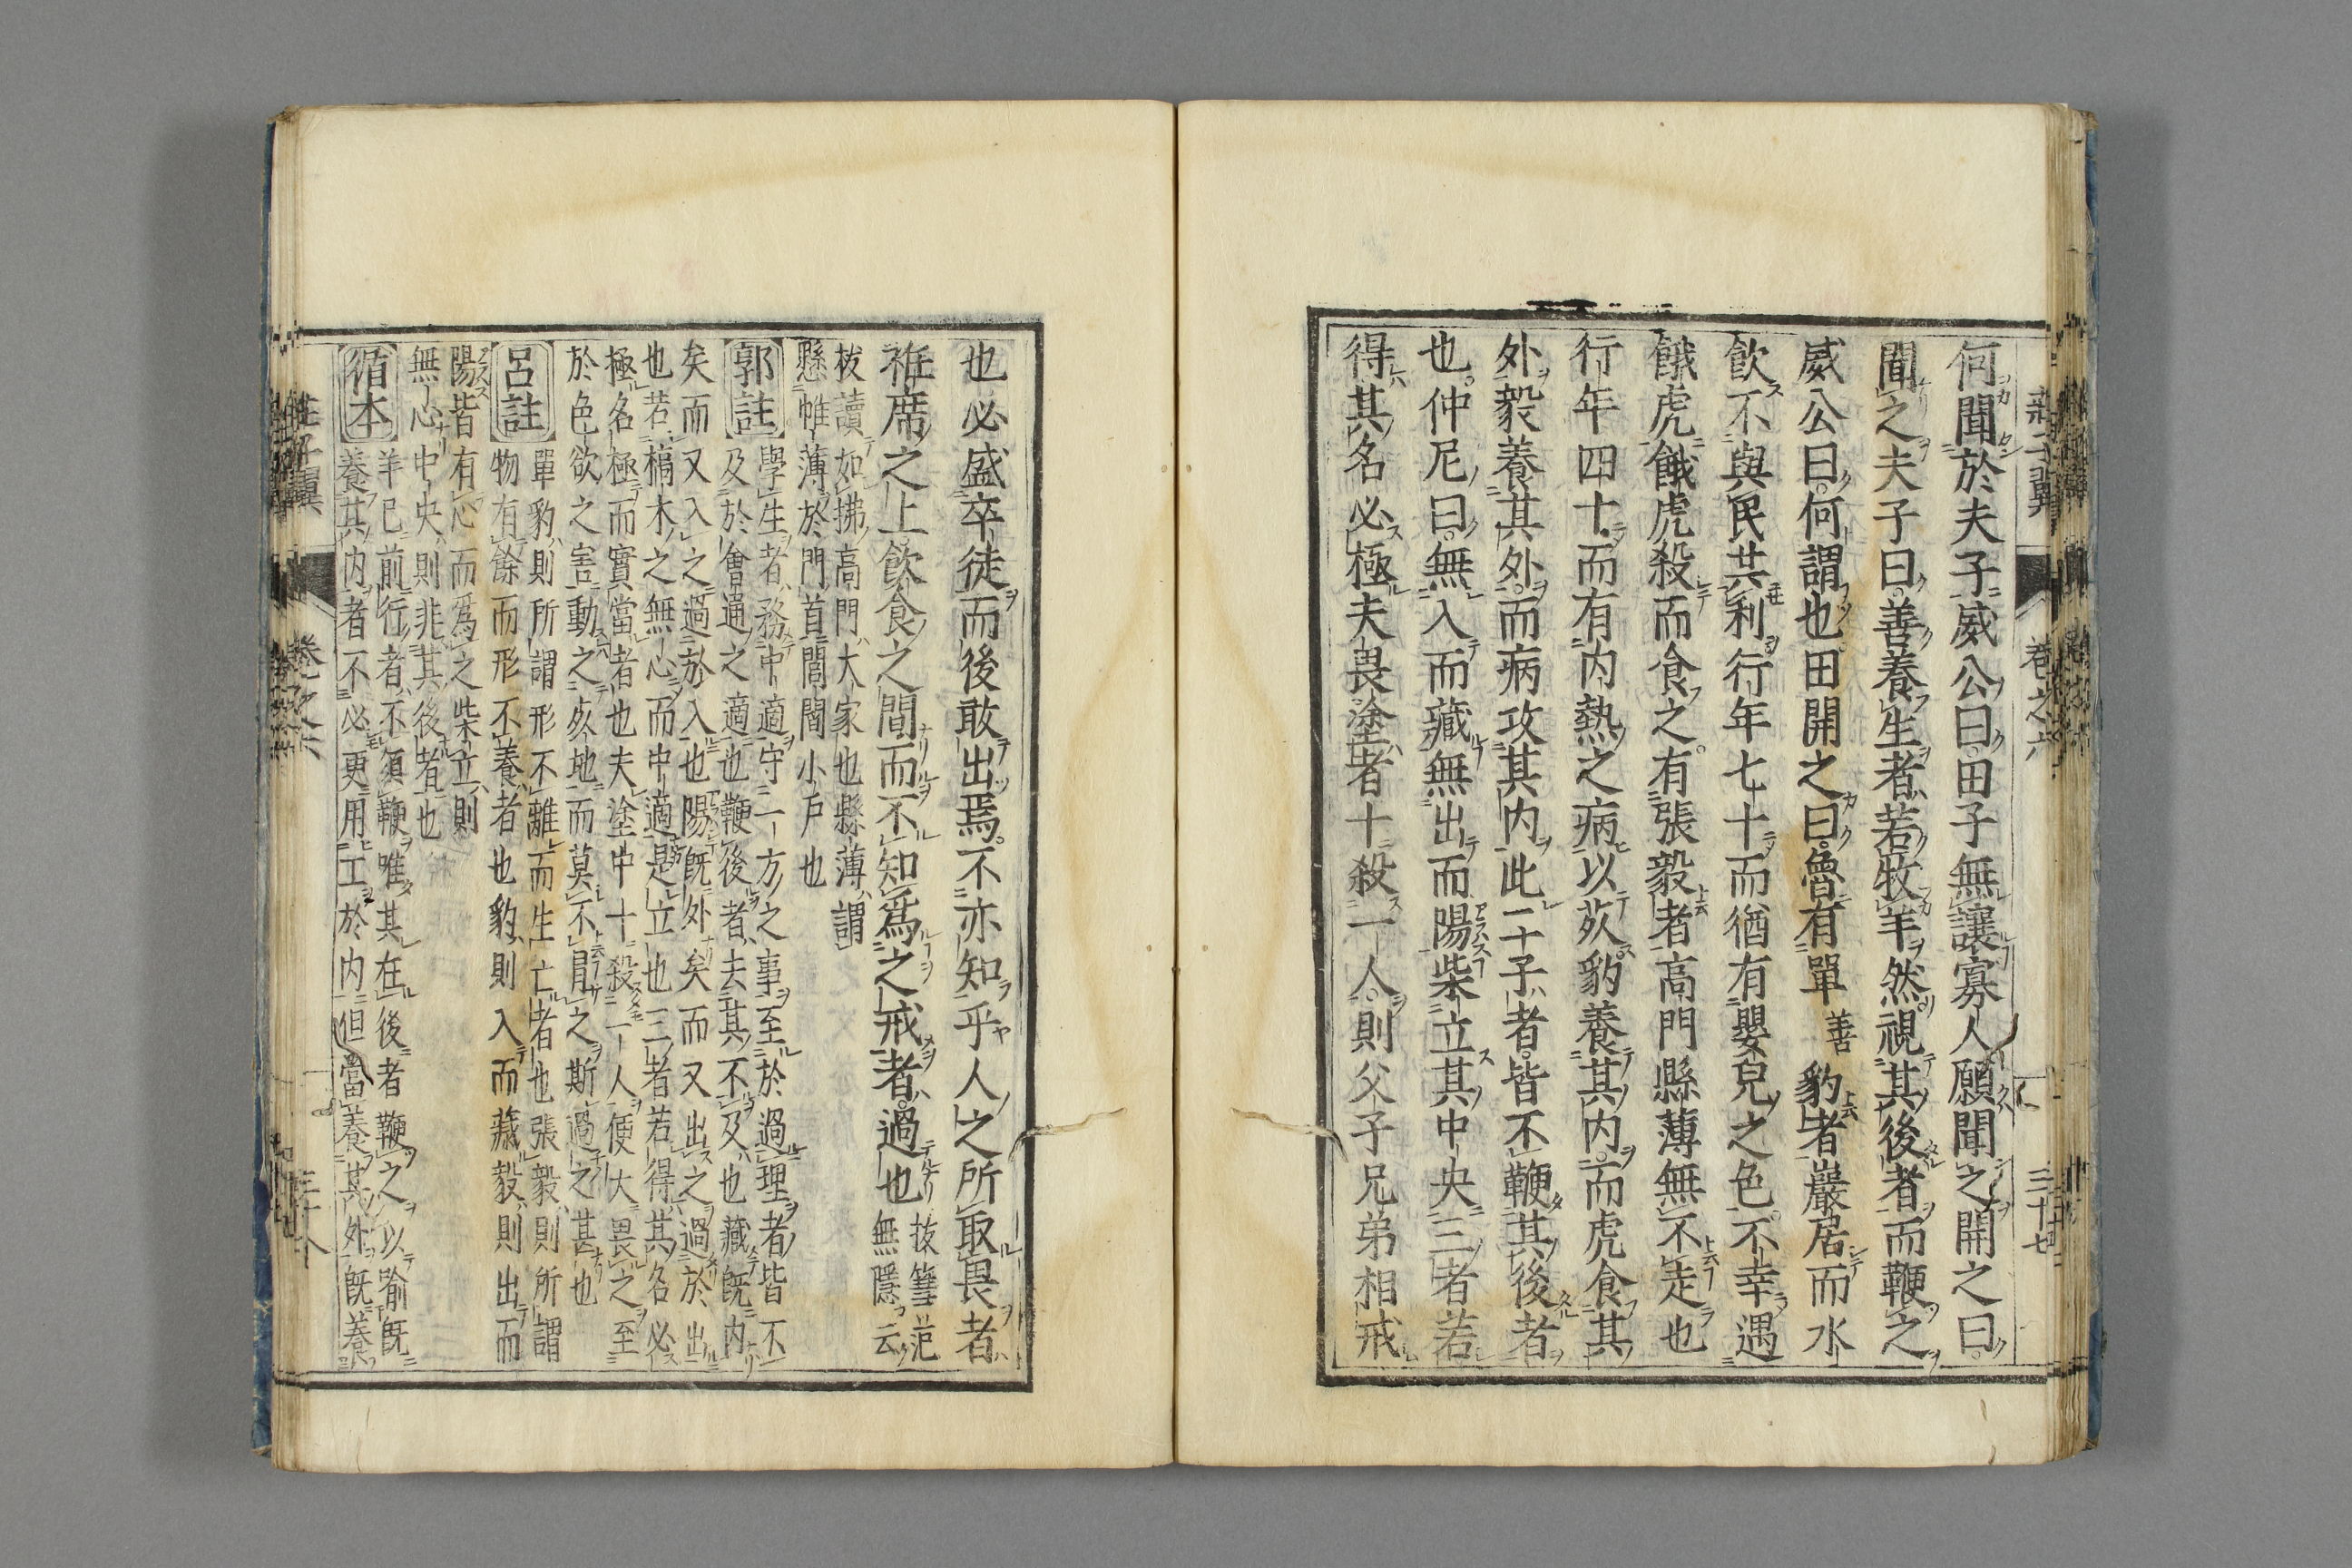 莊子翼 卷之六 三十七
何聞於夫子威公曰田子無讓寡人願聞之開之曰
聞之夫子曰善養生者若牧羊然視其後者而鞭之
威公曰何謂也田開之曰魯有單善豹者巖居而水
飲不與民共利行年七十而猶有嬰兒之色不幸遇
餓虎餓虎殺而食之有張毅者高門縣薄無不走也
行年四十而有内熱之病以死豹養其内而虎食其
外毅養其外而病攻其内此二子者皆不鞭其後者
也仲尼曰無入而藏無出而陽柴立其中央三者若
得其名必極夫畏塗者十殺一人則父子兄弟相戒
也必盛卒徒而後敢出焉不亦知乎人之所取畏者
袵席之上飲食之間而不知爲之戒者過也拔篲范
無隱云
拔讀如拂高門大家也縣薄謂
懸帷薄於門首閭閻小戶也
郭註 學生者務中適守一方之事至於過理者皆不
及於會通之適也鞭後者去其不及也藏既内
矣而又入之過於入也陽既外矣而又出之過於出
也若槁木之無心而中適是立也三者若得其名必
極名極而實當者也夫塗中十殺一人便大畏之至
於色欲之害動之死地而莫不冒之斯過之甚也
呂註 單豹則所謂形不離而生亡者也張毅則所謂
物有餘而形不養者也豹則入而藏毅則出而
陽皆有心而爲之柴立則
無心中央則非其後者也
循本 羊已前行者不須鞭唯其在後者鞭之以喻既
養其内者不必更用工於内但當養其外既養
莊子翼 卷之六 三十八